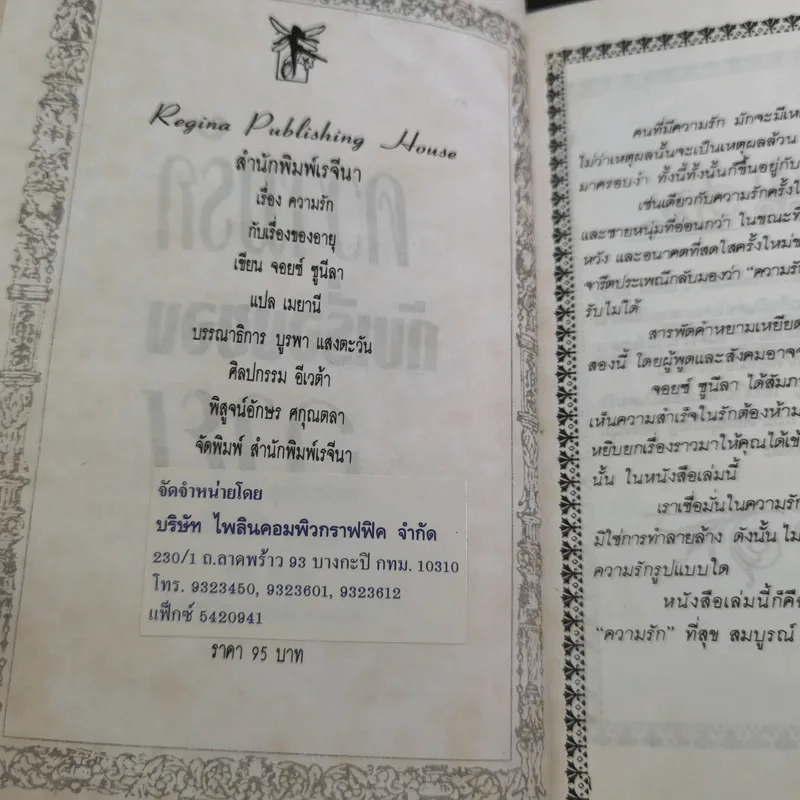 Regina Publishing House
สำนักพิมพ์เรจีนา
เรื่อง ความรัก
กับเรื่องของอายุ
เขียน จอยซ์ ซูนีลา
แปล เมยานี
บรรณาธิการ บูรพา แสงตะวัน
ศิลปกรรม อีเวต้า
พิสูจน์อักษร ศกุณตลา
จัดพิมพ์ สำนักพิมพ์เรจีนา
จัดจำหน่ายโดย
บริษัท ไพลินคอมพิวกราฟฟิค จำกัด
230/1 ถ.ลาดพร้าว 93 บางกะปิ กทม. 10310
โทร. 9323450, 9323601, 9323612
แฟ็กซ์ 5420941
ราคา 95 บาท
คนที่มีความรัก มักจะมี
ไม่ว่าเหตุผลนั้นจะเป็นเหตุผลล้วน
มาครอบงำ ทั้งนี้ทั้งนั้นก็ขึ้นอยู่กับ
เช่นเดียวกับความรักครั้ง
และชายหนุ่มที่อ่อนกว่า ในขณะที่
หวัง และอนาคตที่สดใสครั้งใหม่
จารีตประเพณีกลับมองว่า "ความรัก
รับไม่ได้
สารพัดคำหยามเหยียด
สองนี้ โดยผู้พูดและสังคมอาจ
จอยซ์ ซูนีลา ได้สัมภา
เห็นความสำเร็จในรักต้องห้าม
หยิบยกเรื่องราวมาให้คุณได้
นั้น ในหนังสือเล่มนี้
เราเชื่อมั่นในความรัก
มิใช่การทำลายล้าง ดังนั้น ไม่
ความรักรูปแบบใด
หนังสือเล่มนี้ก็คือ
"ความรัก" ที่สุข สมบูรณ์